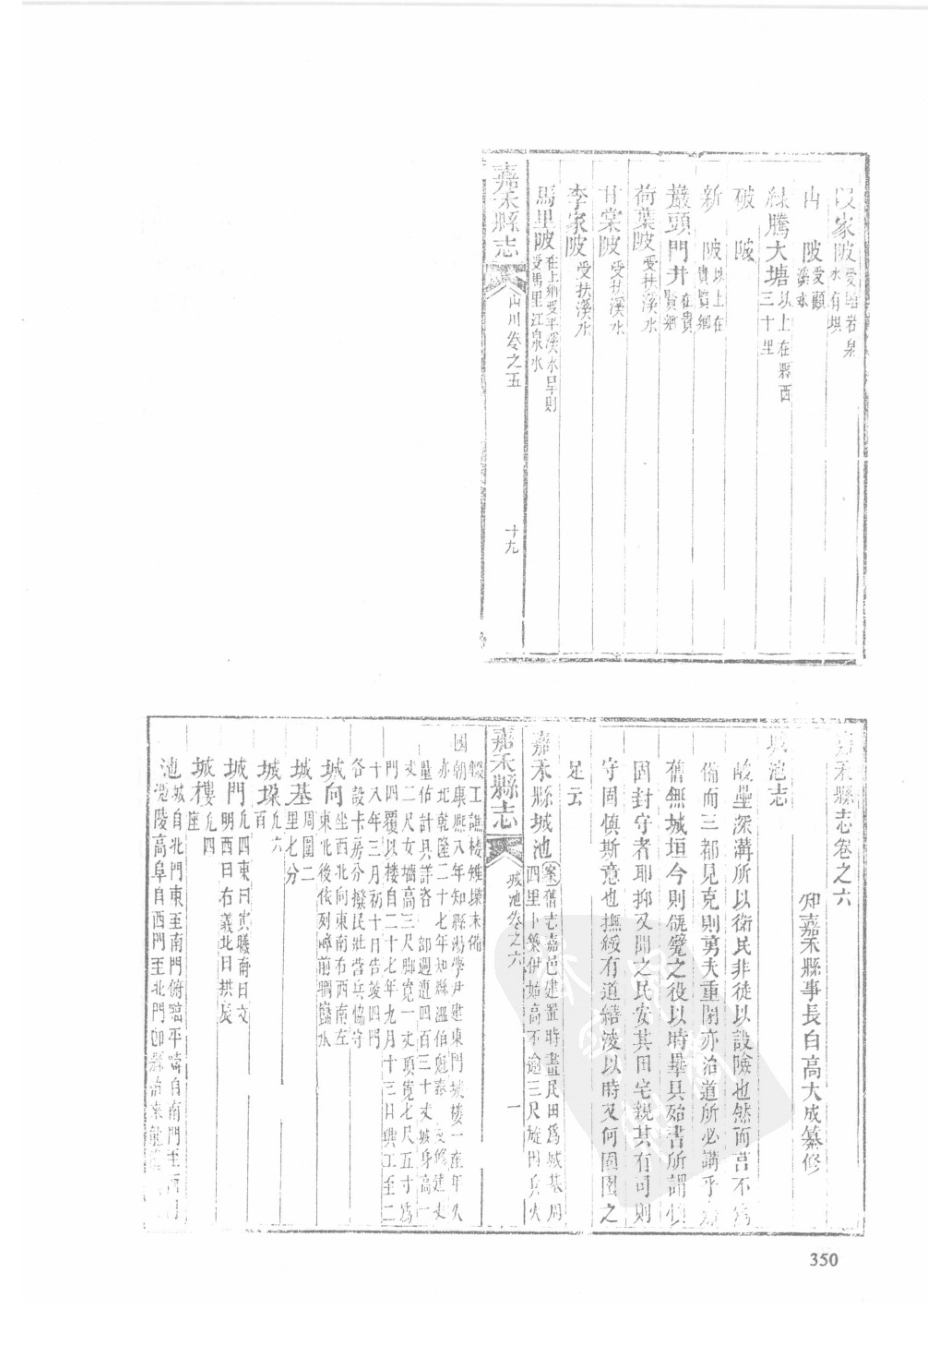 家陂受岩泉水有垻
山 陂受顧溪水
綠騰大塘以上在縣西三十里
破 陂
新 陂以上在貴賢鄉
嚴頭門井在貴賢鄉
荷葉陂受扶溪水
甘棠陂受扶溪水
李家陂受扶溪水
馬里陂在上納受平溪水旱則受馬里江泉水
嘉禾縣志 山川卷之五 十九
嘉禾縣志卷之六
知嘉禾縣事長白高大成纂修
城池志
壘深溝所以衛民非徒以設險也然而莒不
備而三都見克則勇夫重閉亦治道所必講乎
舊無城垣今則之役以時畢具殆書所謂慎
固封守者耶抑又聞之民安其田宅親其有司則
守固慎斯意也撫綏有道繕浚以時又何固圉之
足云
嘉禾縣城池案舊志嘉邑建置時畫民田為城基周四里卜築僅始高不逾三尺旋因兵火
嘉禾縣志 城池卷之六 一
輟工譙樓雉堞未備
國朝康熙八年知縣學尹建東門城樓一座年久
亦圮乾隆二十七年知縣溫伯魁修建丈
量估計具詳咨部週遭四百三十丈城身高一
丈二尺女墻高三尺腳寬一丈頂寬七尺五寸為
門四覆以樓自二十七年九月十三日興工至二
十八年三月初十日告竣四門
各設卡房分撥民壯營兵協守
城向坐西北向東南右西南左東北後依列嶂前臨水
城基周圍二里七分
城垛凡六百
城門凡四東曰南曰文明西曰右義北曰拱辰
城樓凡四座
池城自北門東至南門俯臨平疇自南門至西門陵高阜自西門至北門
350